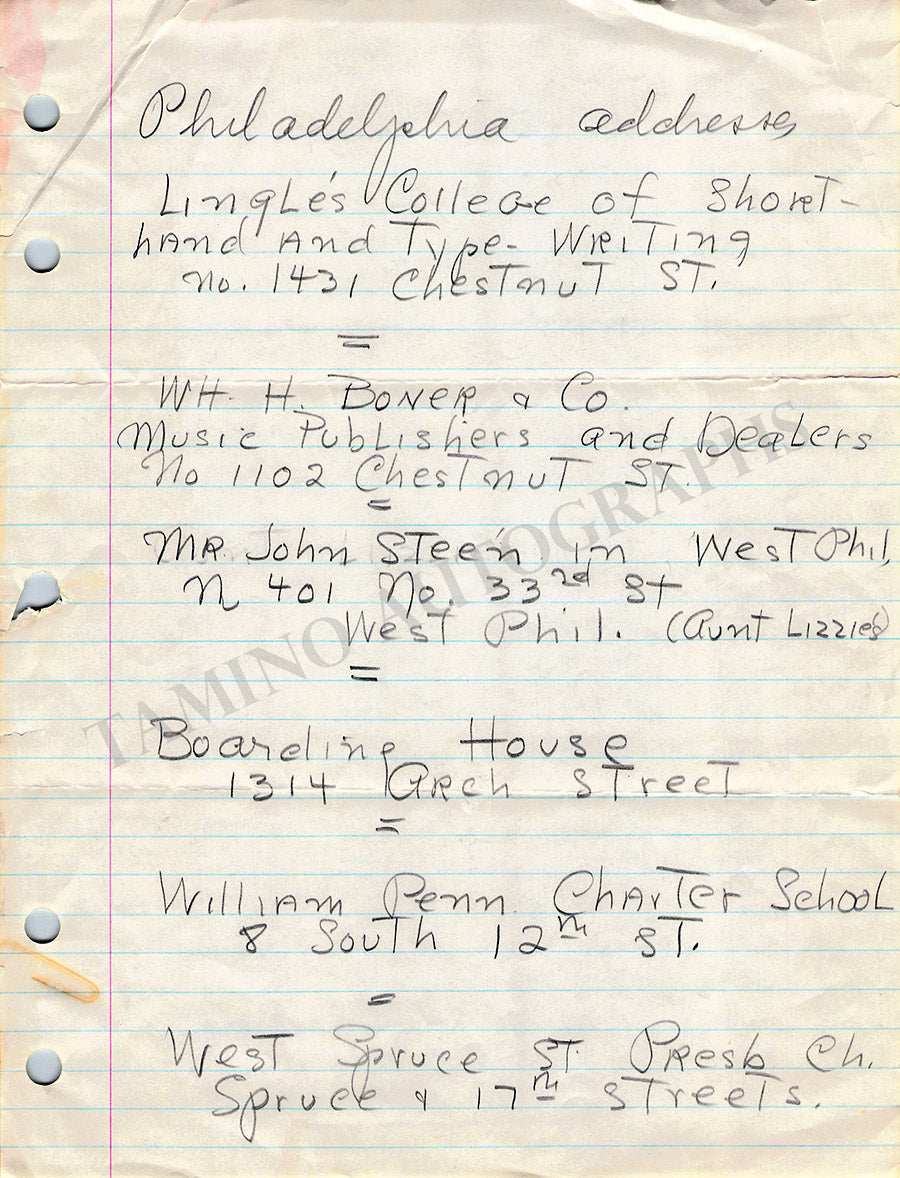 Philadelphia addresses
Lingle's College of Short-
hand and Type-Writing
No. 1431 Chestnut St.
=
WH. H. Boner & Co.
Music Publishers and Dealers
No 1102 Chestnut St.
=
Mr. John Steen in West Phil,
N 401 No. 33rd St
West Phil. (Aunt Lizzies)
=
Boarding House
1314 Arch Street
=
William Penn Charter School
8 South 12th St.
=
West Spruce St. Presb Ch.
Spruce & 17th Streets.
TAMINO AUTOGRAPHS